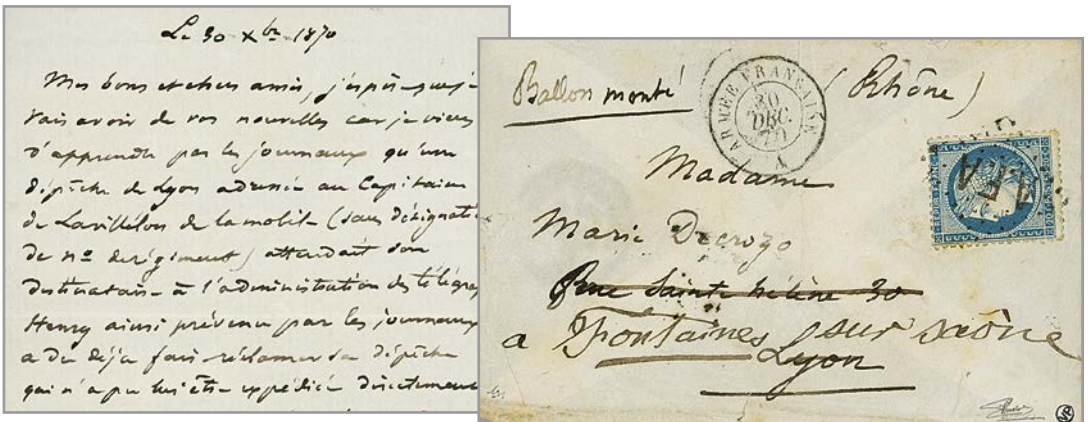 Le 30 Xbre 1870
Mes bons et chers amis, j'espère que je
vais avoir de vos nouvelles car je viens
d'apprendre par les journaux qu'une
dépêche de Lyon adressée au Capitaine
de Lavillélou de la mobile (sans désignati
de no de régiment) attendait son
destinataire à l'administration des télégra
Henry ainsi prévenu par les journaux
a du déjà faire réclamer sa dépêche
qui n'a pu lui être expédiée directement
Ballon monté
(Rhône)
ARMÉE FRANÇAISE
30
DEC.
70
A
Madame
Marie Decroze
Rue Sainte hélène 30
a Fontaines sur saône
Lyon
REPUB. FRANC.
A.F.A